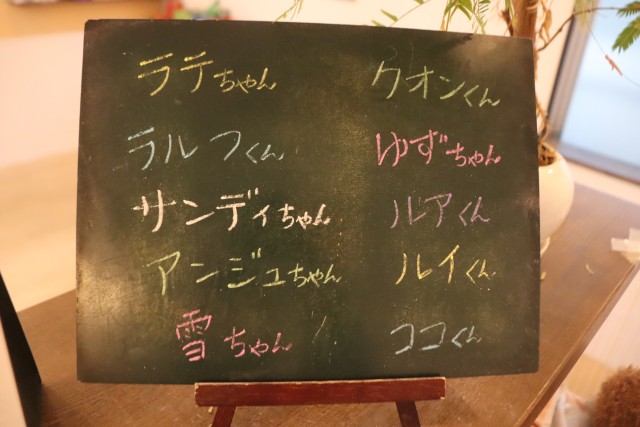 ラテちゃん
ラルフくん
サンディちゃん
アンジュちゃん
雪ちゃん
クオンくん
ゆずちゃん
ルアくん
ルイくん
ココくん